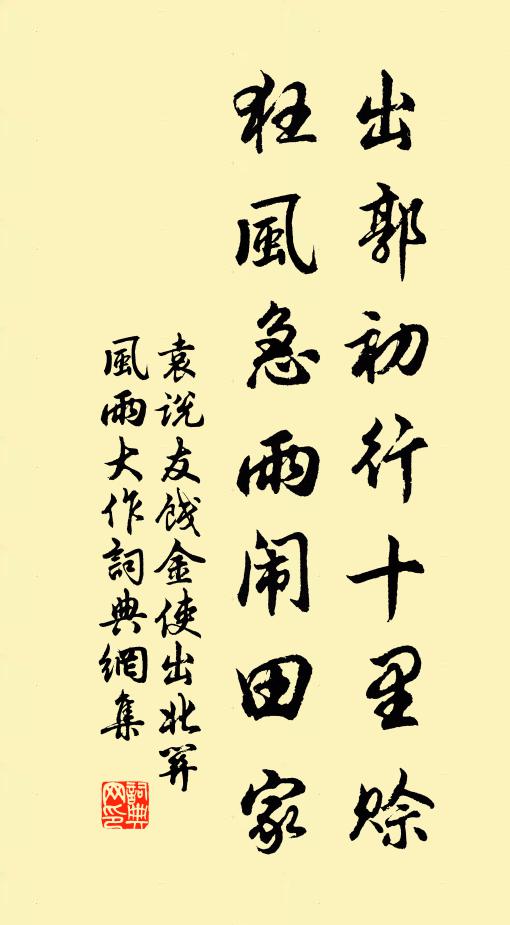 出郭初行十里赊
狂風急雨闹田家
袁说友餞金使出北関
風雨大作詞典網集
詞典网印